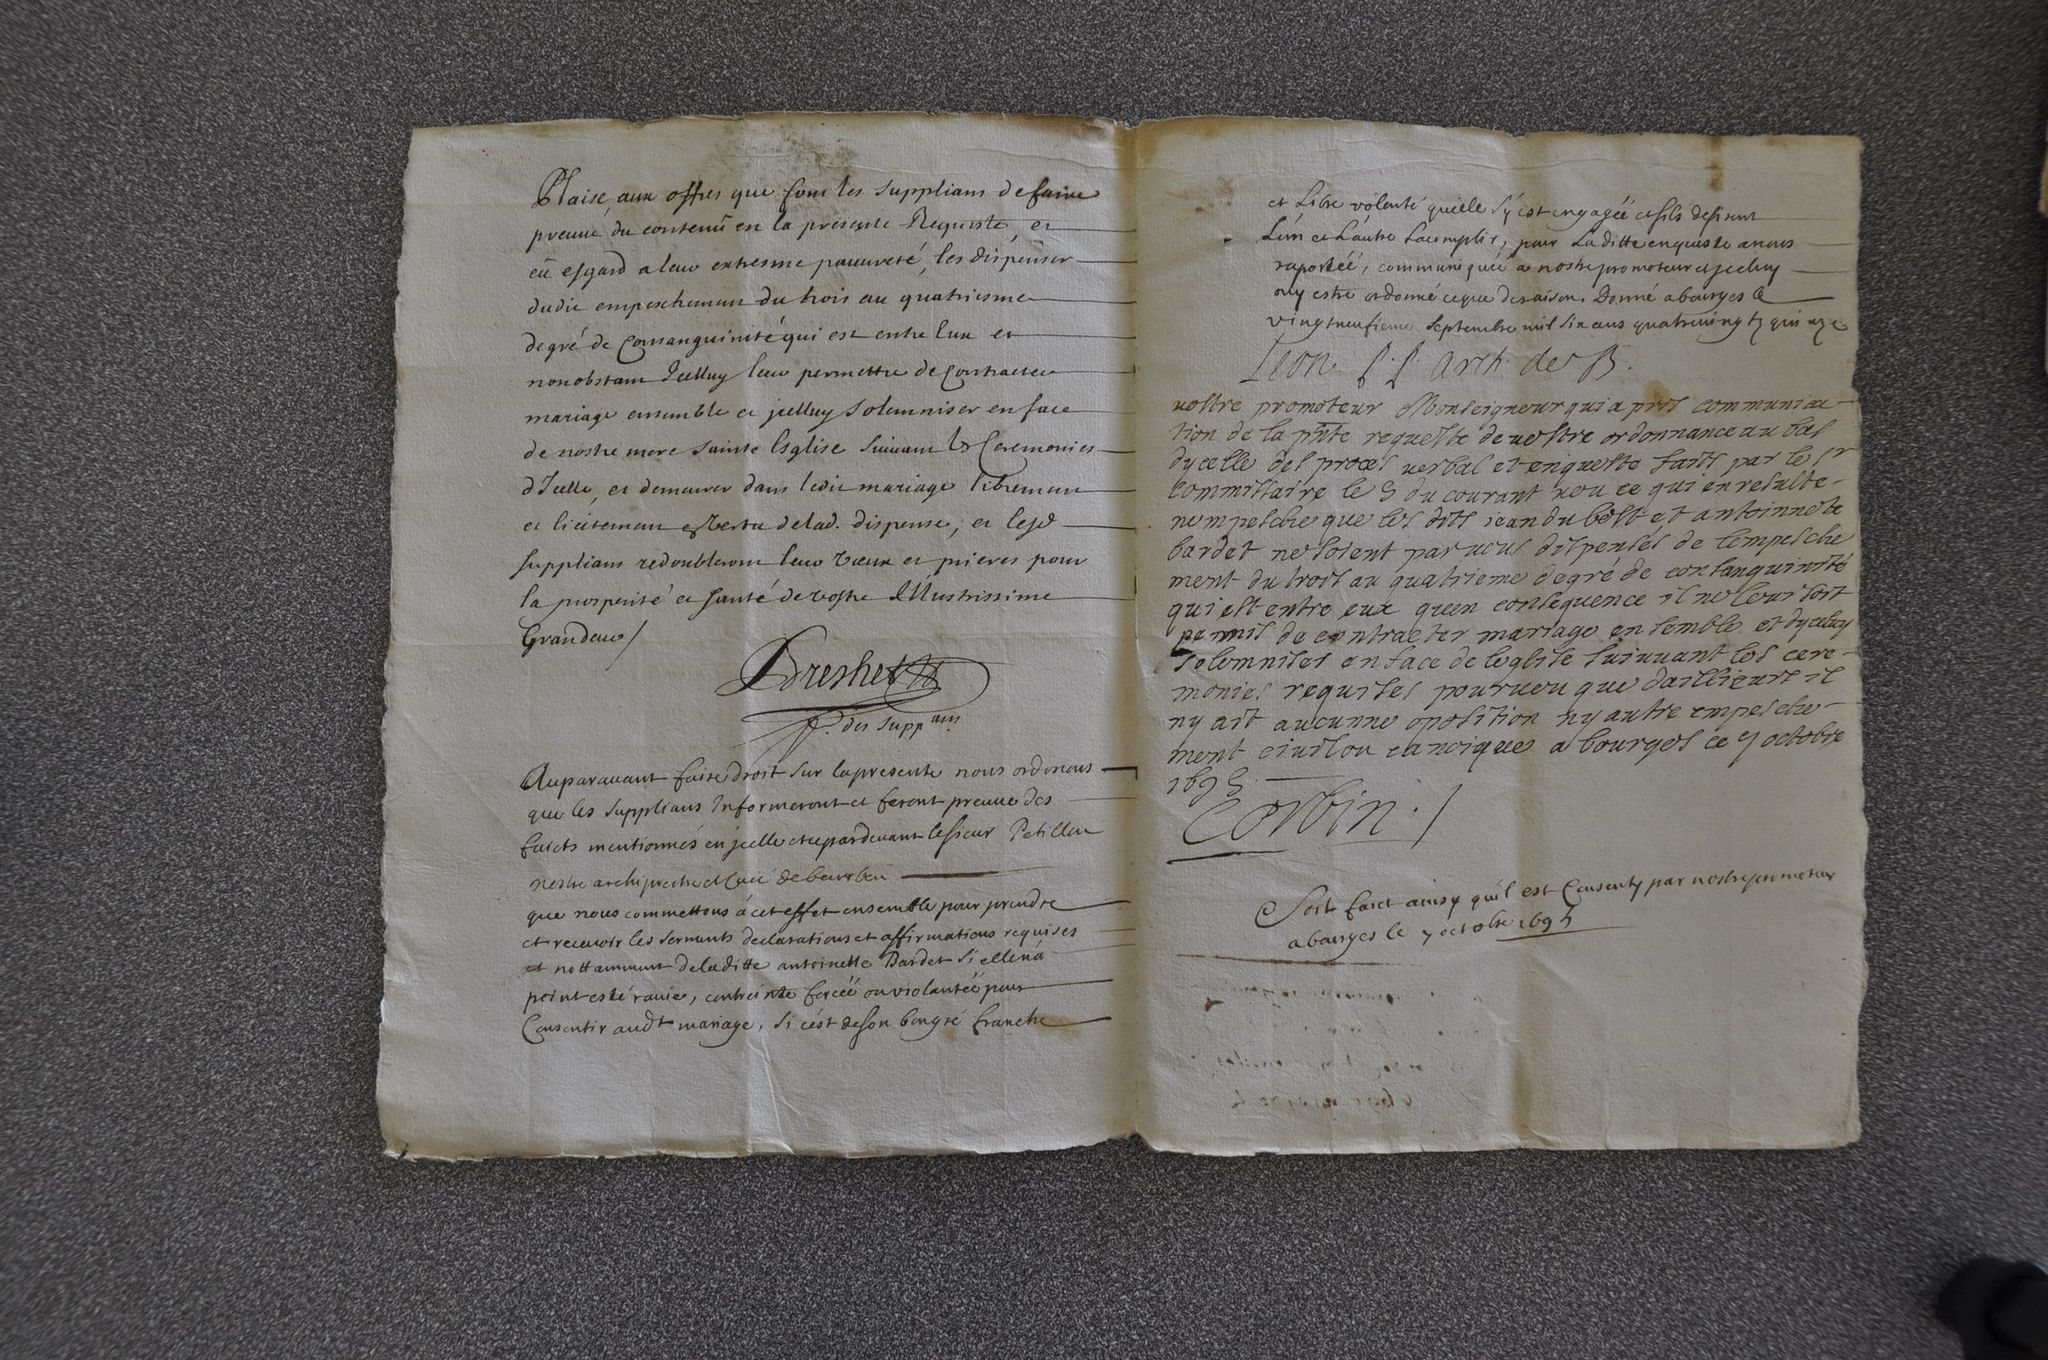 Plaise, aux offres que font les supplians de faire
preuve du contenû en la presente Requeste, et
eû esgard a leur extresme pauureté, les dispenser
dudit empeschement du trois au quatriesme
degré de Consanguinité qui est entre Eux et
nonobstant Icelluy leur permettre de Contracter
mariage ensemble et jcelluy Solemniser en face
de nostre mere sainte Esglise suiuant les Ceremonies
d'Icelle, et demeurer dans ledit mariage librement
et licitement en Vertu de lad. dispense, et lesd
supplians redoubleront leur vœux et prieres pour
la prosperité et santé de vostre Illustrissime
Grandeur /
P. des Supp.ans
Auparauant faire droit sur la presente nous ordonons
que les supplians Informeront et feront preuue des
faicts mentionnés en jcelle pardeuant le sieur Petillon
nostre archiprestre et Curé de bourbon
que nous commettons à cet effet ensemble pour prendre
et receuoir les serments declarations et affirmations requises
et nottamment de laditte antoinette Bardet Si elle na
point esté rauie, contreinte forcéé ou violantéé pour
Consentir audt mariage, Si c'est de son bon gré franche
et Libre volonté quelle s'y est engagéé et sils desirent
Lún et Láutre Lacomplir, pour La ditte enqueste a nous
raportéé, communiquéé a nostre promoteur et jceluy
ouy estre ordonné ce que de raison. Donné a bourges le
vingt neufieme Septembre mil six cens quatreuingtz quinze
Leon P. P. arch. de B.
vostre promoteur Monseigneur qui a pris communica-
tion de la pnte requeste de vostre ordonnance au bas
dycelle des proces verbal et enqueste faits par le sr
Commissaire le 5 du courant veu ce qui en resulte
nempesche que les dits jean du bost et antoinnete
bardet ne soient par vous dispensés de lempesche
ment du trois au quatrieme degré de consanguinité
qui est entre eux quen consequence il ne leur soit
permis de contracter mariage ensemble et dyceluy
solemniser en face de leglise suiuuant les cere-
monies requises pourueu que dailleurs il
ny ait aucunne oposition ny autre empesche-
ment ciuil ou canoique a bourges ce 7 octobre
1695
Corbin . /
Soit faict ainsy qu'il est Consenty par nostre promoteur
a bourges le 7 octobre 1695